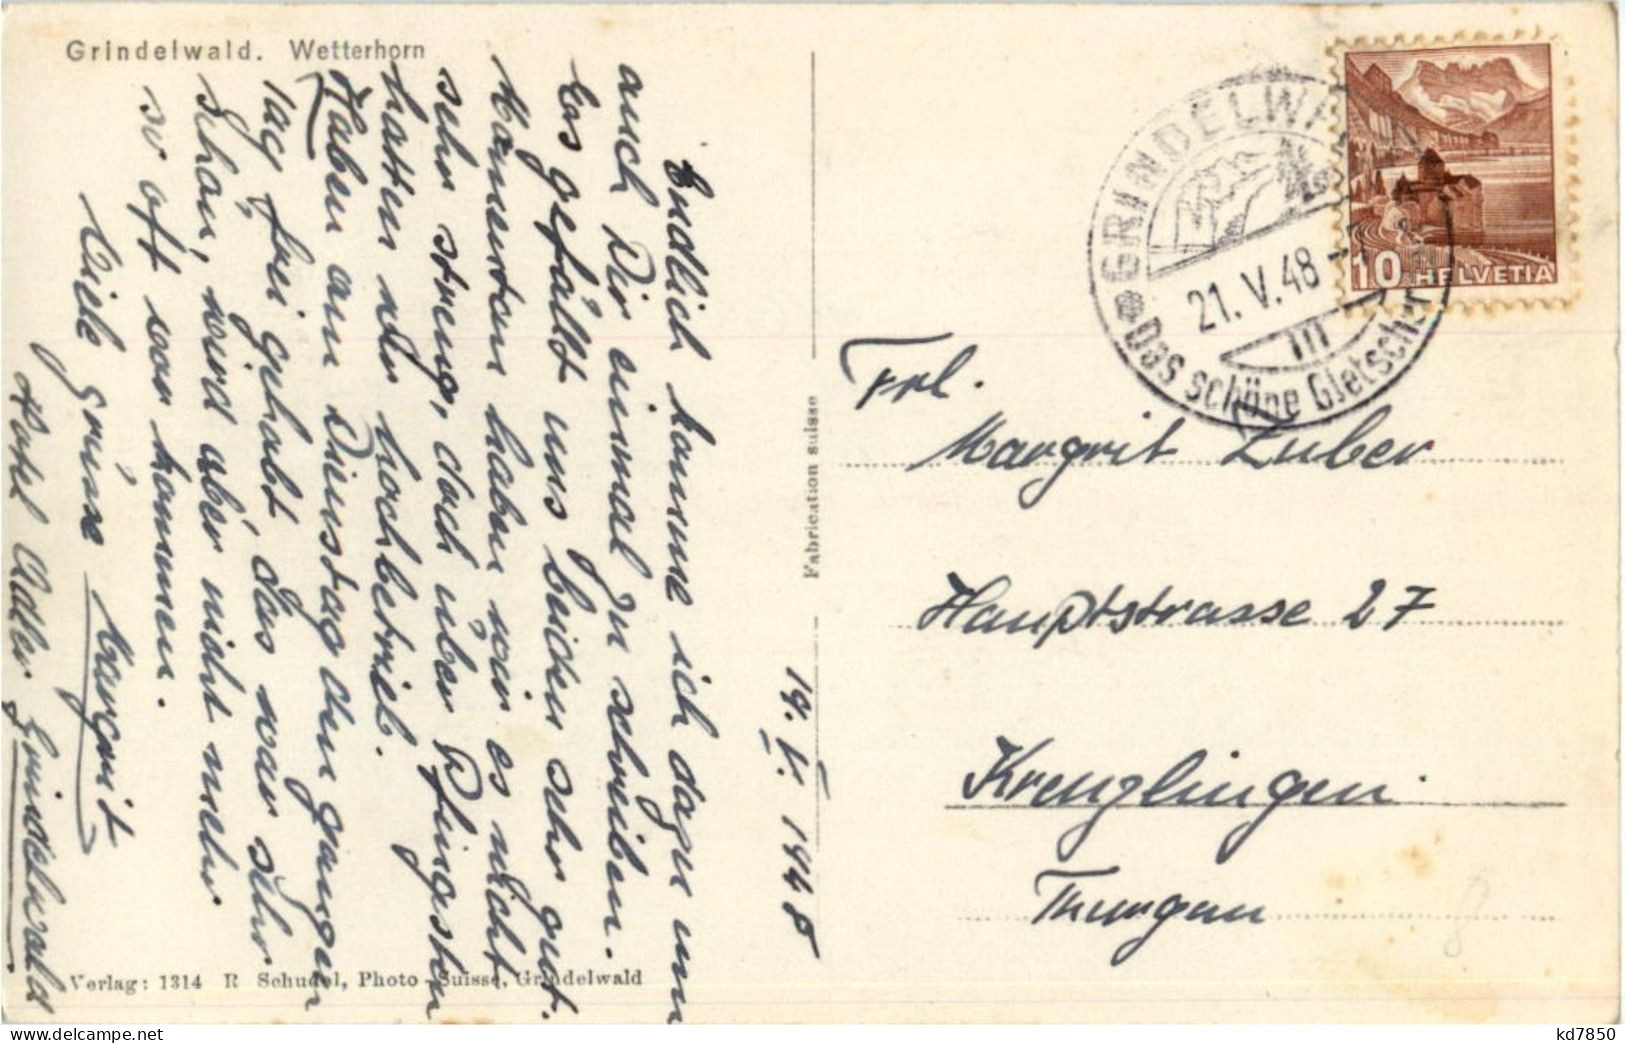 Grindelwald. Wetterhorn
19. V. 1948
Endlich komme ich dazu um
auch Dir einmal zu schreiben.
Es gefällt uns beiden sehr gut.
Momentan haben wir es nicht
sehr streng, doch über Pfingsten
hatten wir Hochbetrieb.
Haben am Dienstag den ganzen
Tag frei gehabt, das war sehr
schön, wird aber nicht mehr
so oft vorkommen.
Viele Grüsse Margrit
Hotel Adler Grindelwald
Verlag: 1314 R Schudel, Photo-Suisse, Grindelwald
Fabrication suisse
GRINDELWALD
21. V. 48
Das schöne Gletscher
10 HELVETIA
Frl.
Margrit Zuber
Hauptstrasse 27
Kreuzlingen
Thurgau
8
kd7850